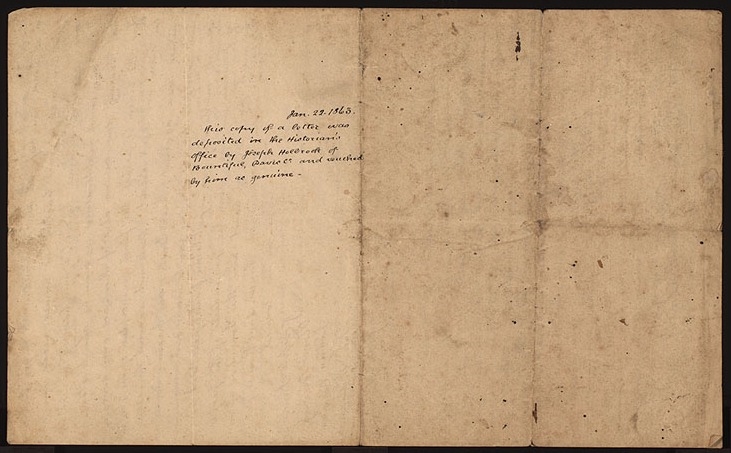 Jan. 29. 1863.
This copy of a letter was
deposited in the Historian's
office by Joseph Holbrook of
Bountiful, Davis Co and vouched
by him as genuine -